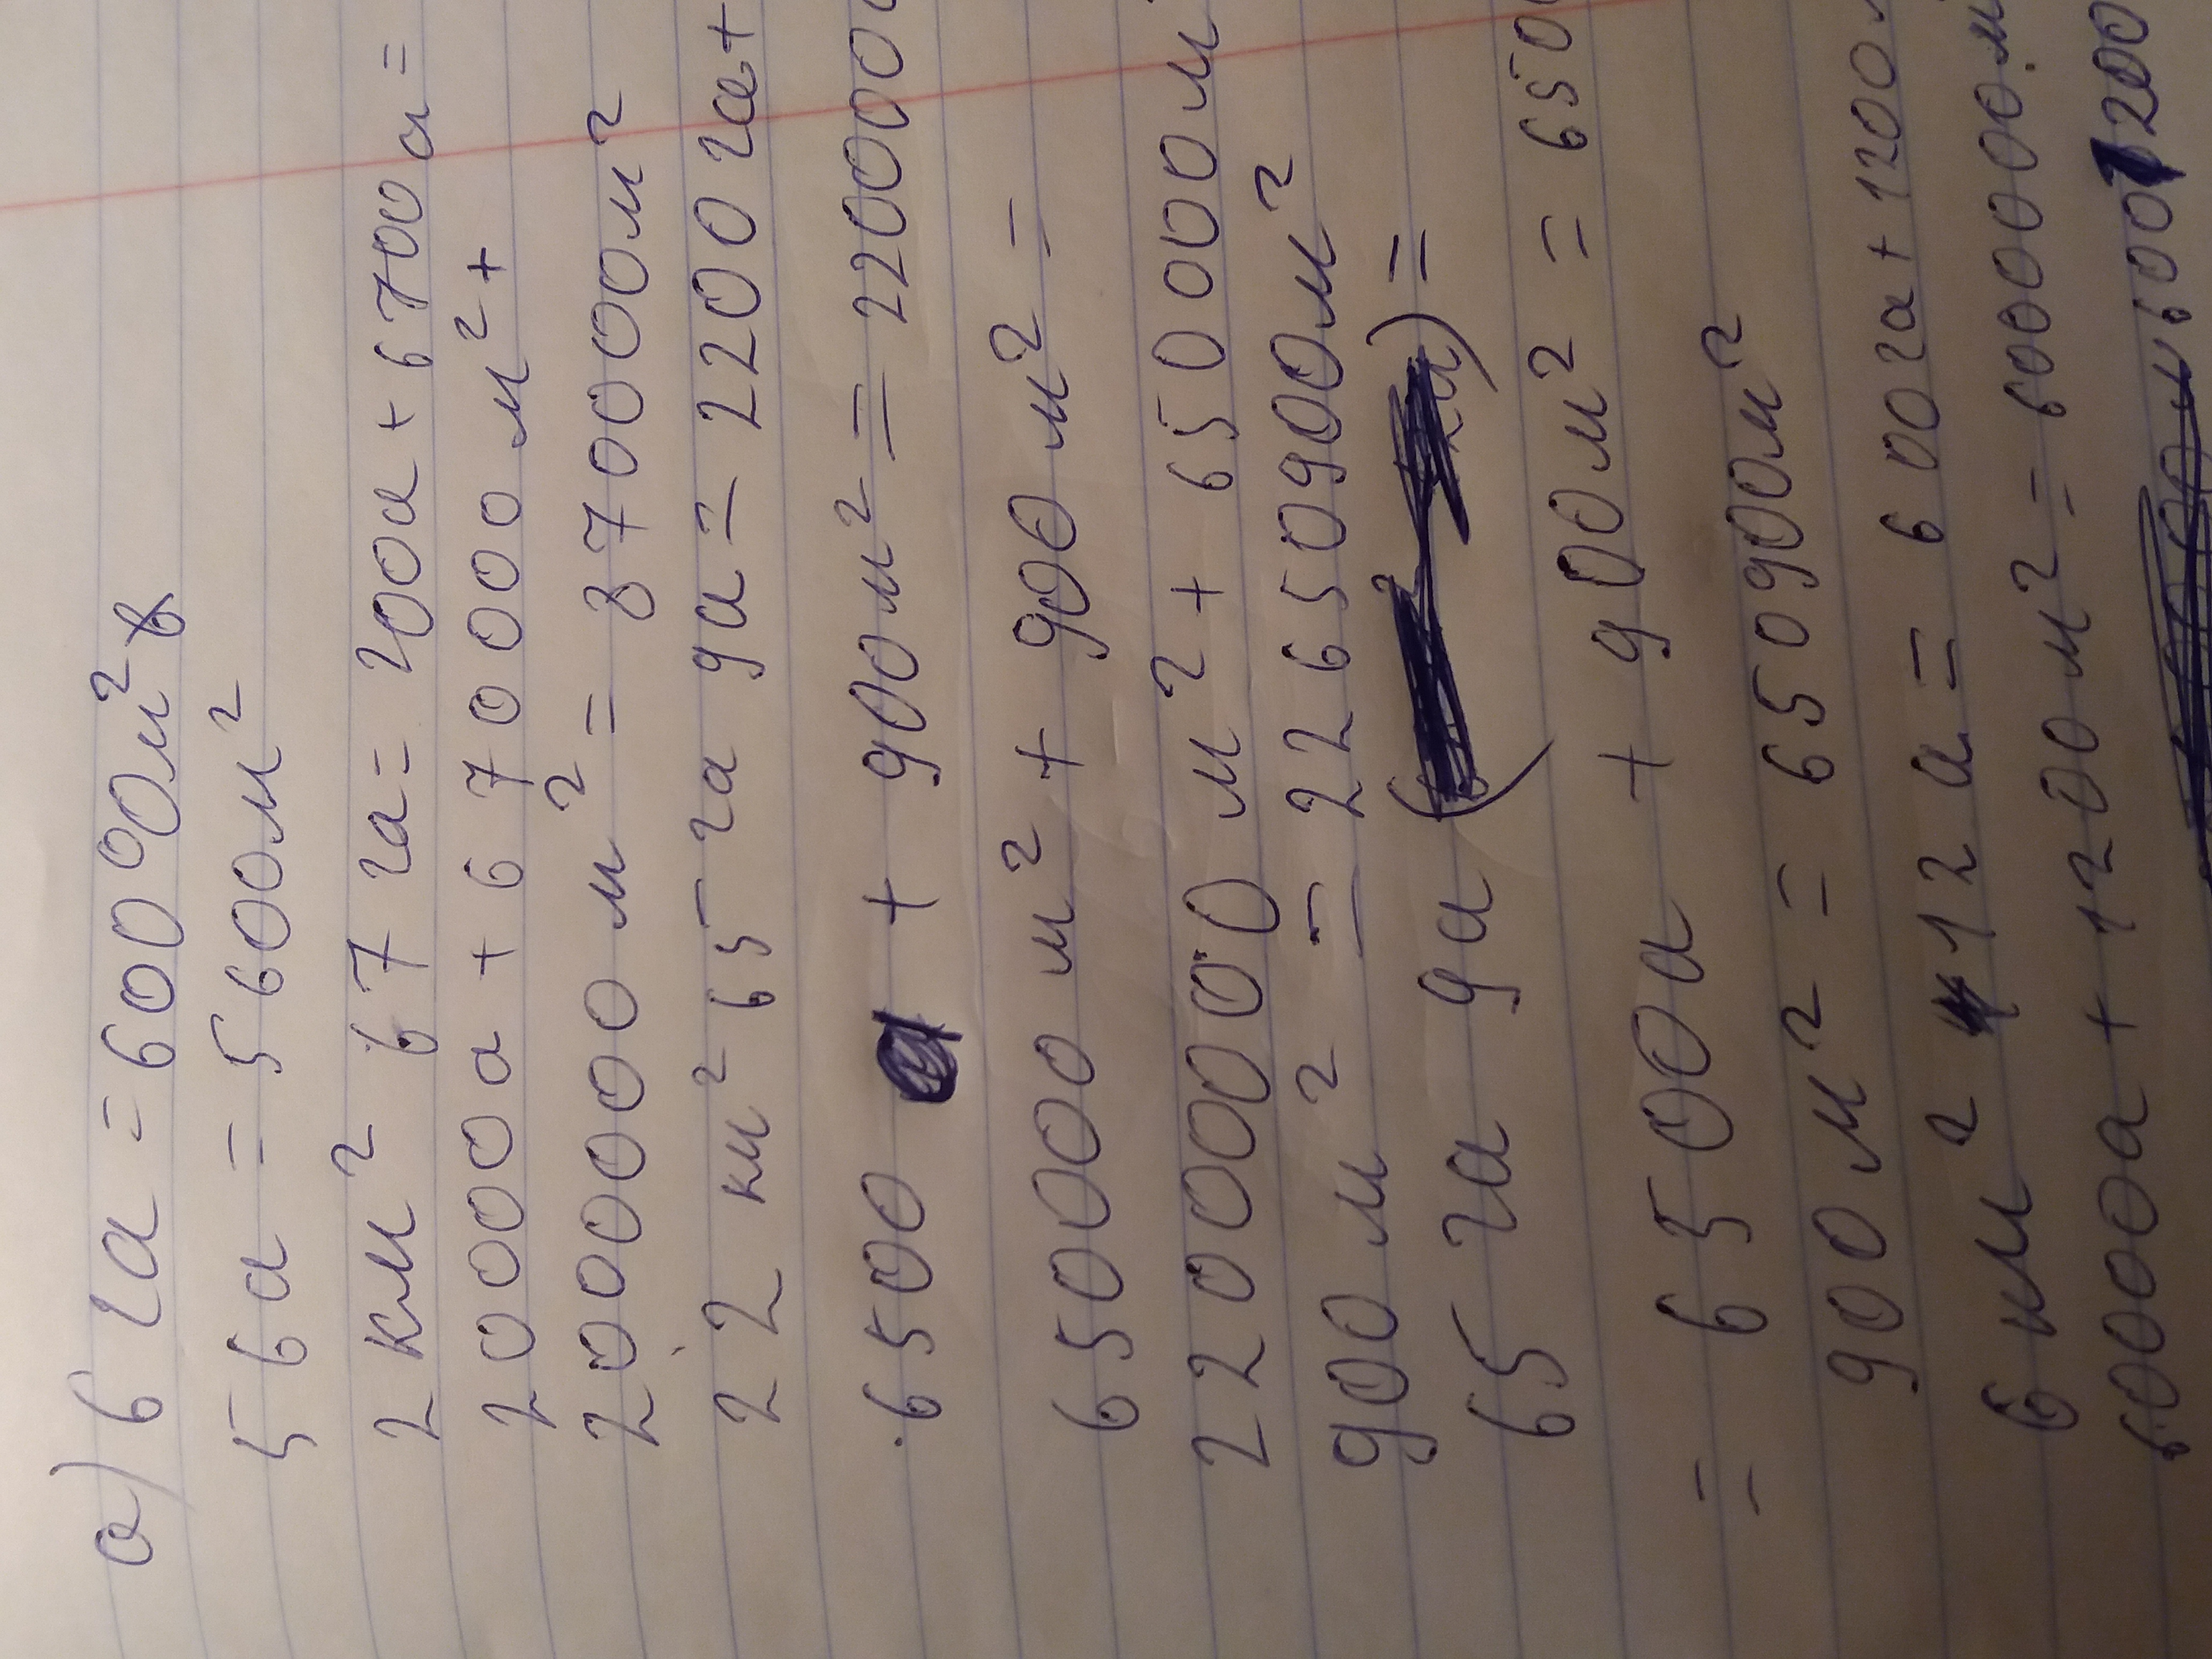 а) 6 га = 60000м²
56а = 5600м²
2 км² 67 га = 200га + 6700а =
20000а + 670000 м² +
2000000 м² = 8 70000м²
22 км² 65 га 9а = 2200га+
6500 + 900м² = 220000
650000 м² + 900 м² =
22000000 м² + 650000м
900 м² = 22650900м²
65 га 9а ( ) =
= 6500а + 900м² = 650
900 м² = 650900м²
6 км² 12 а = 600га + 1200м
6000а + 1200м² = 6000000м
6001200